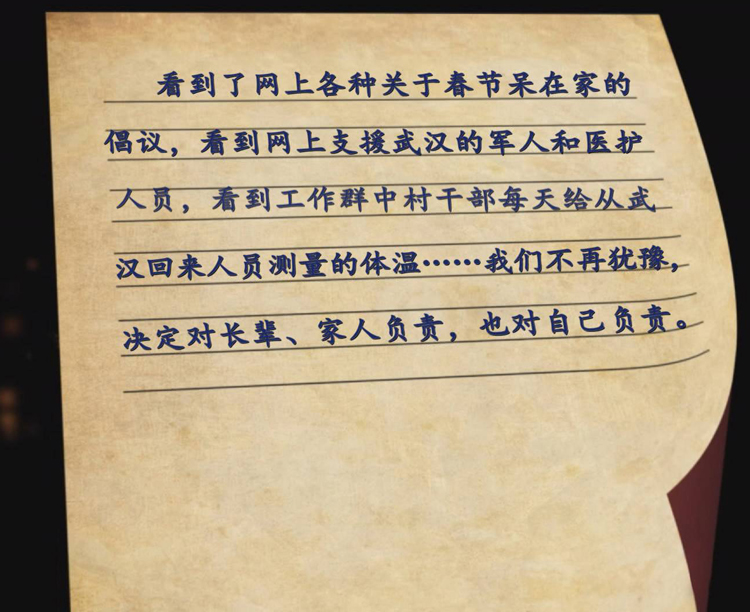 看到了网上各种关于春节呆在家的
倡议，看到网上支援武汉的军人和医护
人员，看到工作群中村干部每天给从武
汉回来人员测量的体温……我们不再犹豫，
决定对长辈、家人负责，也对自己负责。